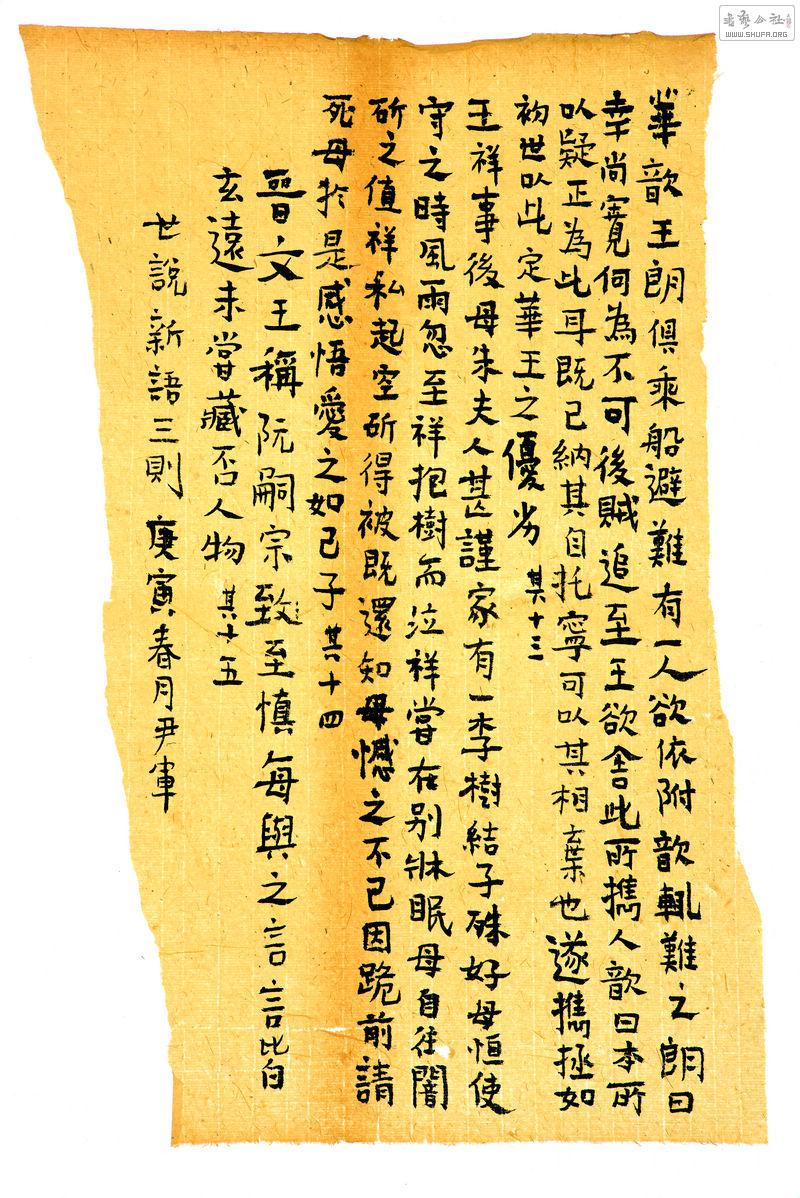 華歆王朗俱乘船避難有一人欲依附歆輒難之朗曰
幸尚寬何為不可後賊追至王欲舍此所攜人歆曰本所
以疑正為此耳既已納其自托寧可以其相棄也遂攜拯如
初世以此定華王之優劣 其十三
王祥事後母朱夫人甚謹家有一李樹結子殊好母恒使
守之時風雨忽至祥抱樹而泣祥嘗在別牀眠母自往闇
斫之值祥私起空斫得被既還知母憾之不已因跪前請
死母於是感悟愛之如己子 其十四
晉文王稱阮嗣宗致至慎每與之言言皆
玄遠未嘗藏否人物 其十五
世說新語三則 庚寅春月尹軍
書藝公社
WWW.SHUFA.ORG